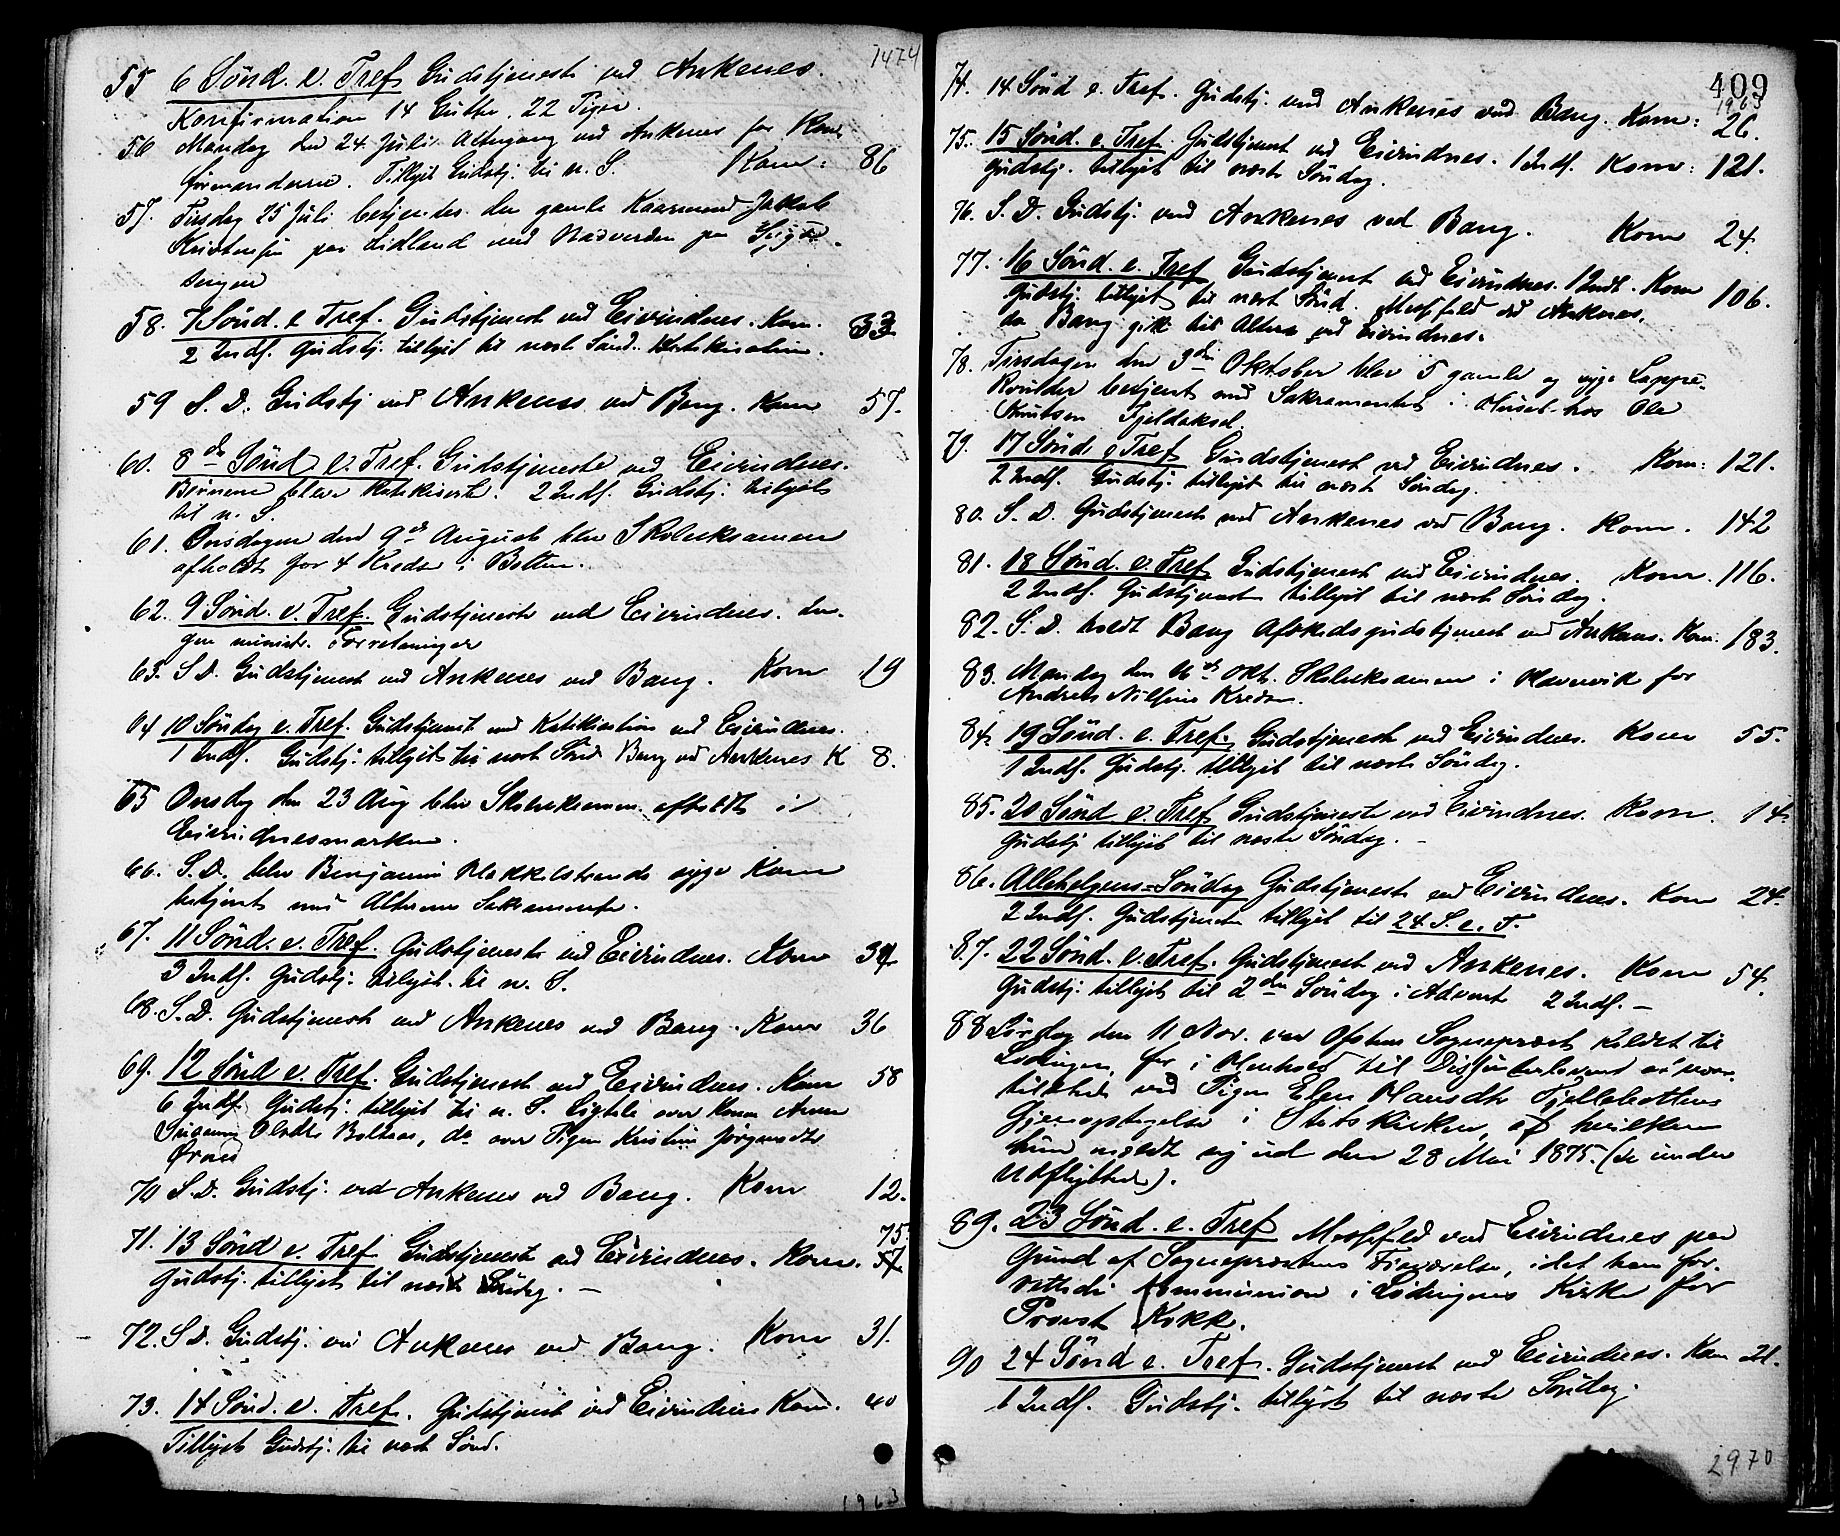 1474
55 6 Sønd. e. Tref. Gudstjeneste ved Ankenes.
Konfirmation 14 Gutter, 22 Piger.
56 Mandag den 24 Juli. Altergang ved Ankenes for Konf
Tillyst Gudstj. til n. S. Kom: 86
57. Tirsdag 25 Juli betjentes den gamle Jakob
Kristensen paa Lidland med Nadverden paa Syge
sengen
58. 7 Sønd. e Tref. Gudstjenest ved Eivindnes. Kom. 33
2 Indf. Gudstj. tillyst til næst Sønd. Katekisation.
59 S. D. Gudstj ved Ankenes ved Bang. Kom 57.
60. 8de Sønd. e. Tref. Gudstjeneste ved Eivindnes.
Børnene blev katekiseret. 2 Indf. Gudstj. tillyst
til n. S.
61. Onsdagen den 9de August blev Skoleeksamen
afholdt for 4 Kredse i Botten.
62. 9 Sønd. e. Tref. Gudstjeneste ved Eivindnes. In-
gen minist. Forretninger
63. S D. Gudstjenest ved Ankenes ved Bang. Kom 19
64 10 Søndag e. Tref. Gudstjenest med Katekisation ved Eivindnes.
1 Indf. Gudstj. tillyst til næst Sønd Bang ved Ankenes K 8.
65 Onsdag den 23 Aug blev Skoleeksamen afholdt i
Eivindnesmarken.
66. S. D. blev Benjamin syge Kone
betjent med Alterens Sakramente.
67. 11 Sønd. e. Tref. Gudstjeneste ved Eivindnes. Kom 34
3 Indf. Gudstj. tillyst. til n. S.
68. S. D. Gudstjenest ved Ankenes ved Bang. Kom 36
69. 12 Sønd e. Tref. Gudstjenest ved Eivindnes. Kom 58
6 Indf. Gudstj. tillyst til n. S. Ligtale over Kone Anne
Susanna Olsdtr Bolhaas, do over Pigen Kristine Jørgensdtr
Ørnes
70 S. D. Gudstj. ved Ankenes ved Bang. Kom 12.
75.
71. 13 Sønd e. Tref Gudstjenest ved Eivindnes. Kom. 57
Gudstj. tillyst til næst Søndag. –
72. S D. Gudstj. ved Ankenes ved Bang. Kom 31.
73. 14 Sønd. e. Tref. Gudstjenest ved Eivindnes Kom. 40
Tillyst Gudstj. til næst Sønd.
1963
409
1963
74. 14 Sønd e. Tref. Gudstj. ved Ankenes ved Bang. Kom: 26.
75. 15 Sønd. e. Tref. Gudstjenest ved Eivindnes. 1 Indf. Kom: 121.
Gudstj. tillyst til næste Søndag.
76. S. D. Gudstj. ved Ankenes ved Bang. Kom 24.
77. 16 Sønd. e. Tref Gudstjenest ved Eivindnes. 1 Indl. Kom 106.
Gudstj. tillyst til næst Sønd. Messefald ved Ankenes,
da Bang gik til Alters ved Eivindnes.
78. Tirsdagen den 3die Oktober blev 5 gamle og syge Lappe-
Kvinder betjent med Sakramentet i Huset hos Ole
Knutsen Fjeldaksel.
79. 17 Sønd e Tref Gudstjenest ved Eivindnes. Kom: 121.
2 Indf. Gudstj. tillyst til næst Søndag.
80. S. D. Gudstjenest ved Ankenes ved Bang. Kom. 142
81. 18 Sønd. e. Tref. Gudstjenest ved Eivindnes. Kom. 116.
2 Indf. Gudstjenest tillyst til næst Søndag.
82. S. D. holdt Bang Afskedsgudstjenest ved Ankenes. Kom: 183.
83. Mandag den 16de Okt. Skoleeksamen i Havnvik for
Andreas Nilsens Kreds.
84. 19 Sønd. e. Tref. Gudstjenest ved Eivindnes. Kom 55.
1 Indf. Gudstj. tillyst til næst Søndag.
85. 20 Sønd e. Tref. Gudstjeneste ved Eivindnes. Kom. 14.
Gudstj tillyst til næste Søndag. –
86. Allehelgens-Søndag Gudstjenest ved Eivindnes. Kom 24.
2 Indf. Gudstjenest tillyst til 24 S. e. T.
87. 22 Sønd. e. Tref. Gudstjenest ved Ankenes. Kom 54.
Gudstj. tillyst til 2den Søndag i Advent 2 Indf. –
88 Lørdag den 11 Nov. var Ofotens Sogneprest kaldet til
Lødingen, for i Henhold til Dissenterloven at være
tilstede ved Pigen Elen Hansdtr Fjellbottens
Gjenoptagelse i Statskirken, af hvilken
hun meldt sig ud den 28 Mai 1875. (se under
Udflyttede).
89. 23 Sønd. e. Tref Messefald ved Eivindnes paa
Grund af Sogneprestens Fraværelse, idet han for-
rettede Kommunion i Lødingens Kirke for
Provst Kokk.
90 24 Sønd e. Tref. Gudstjenest ved Eivindnes. Kom 21.
1 Indf. Gudstj. tillyst til næste Søndag.
2970